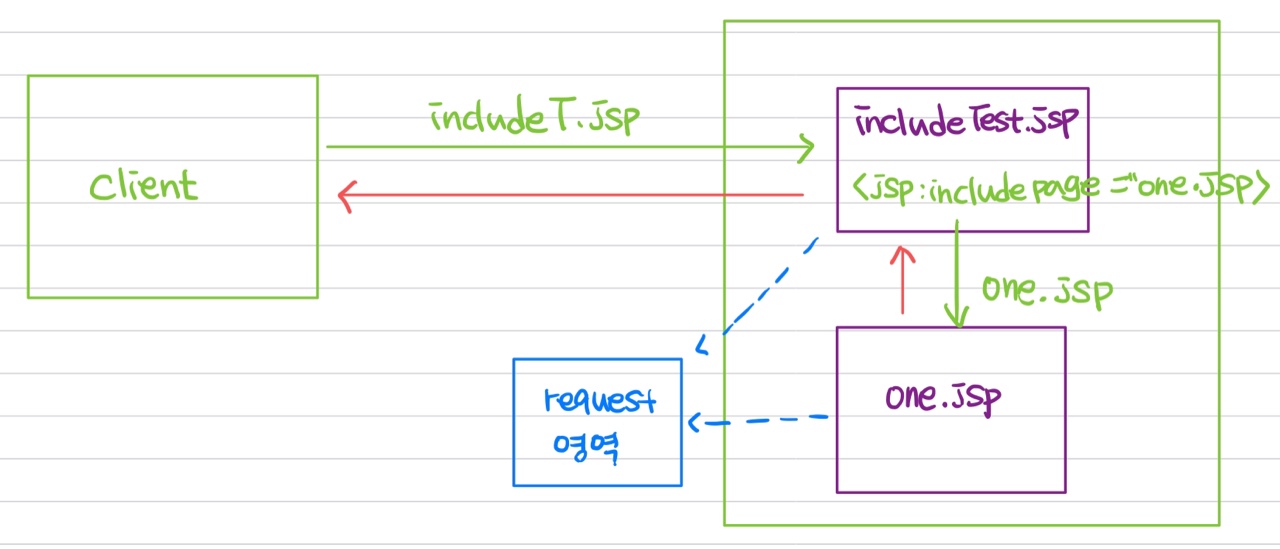 Client
includeT.jsp
includeTest.jsp
<jsp:include page="one.jsp>
one.jsp
one.jsp
request
영역